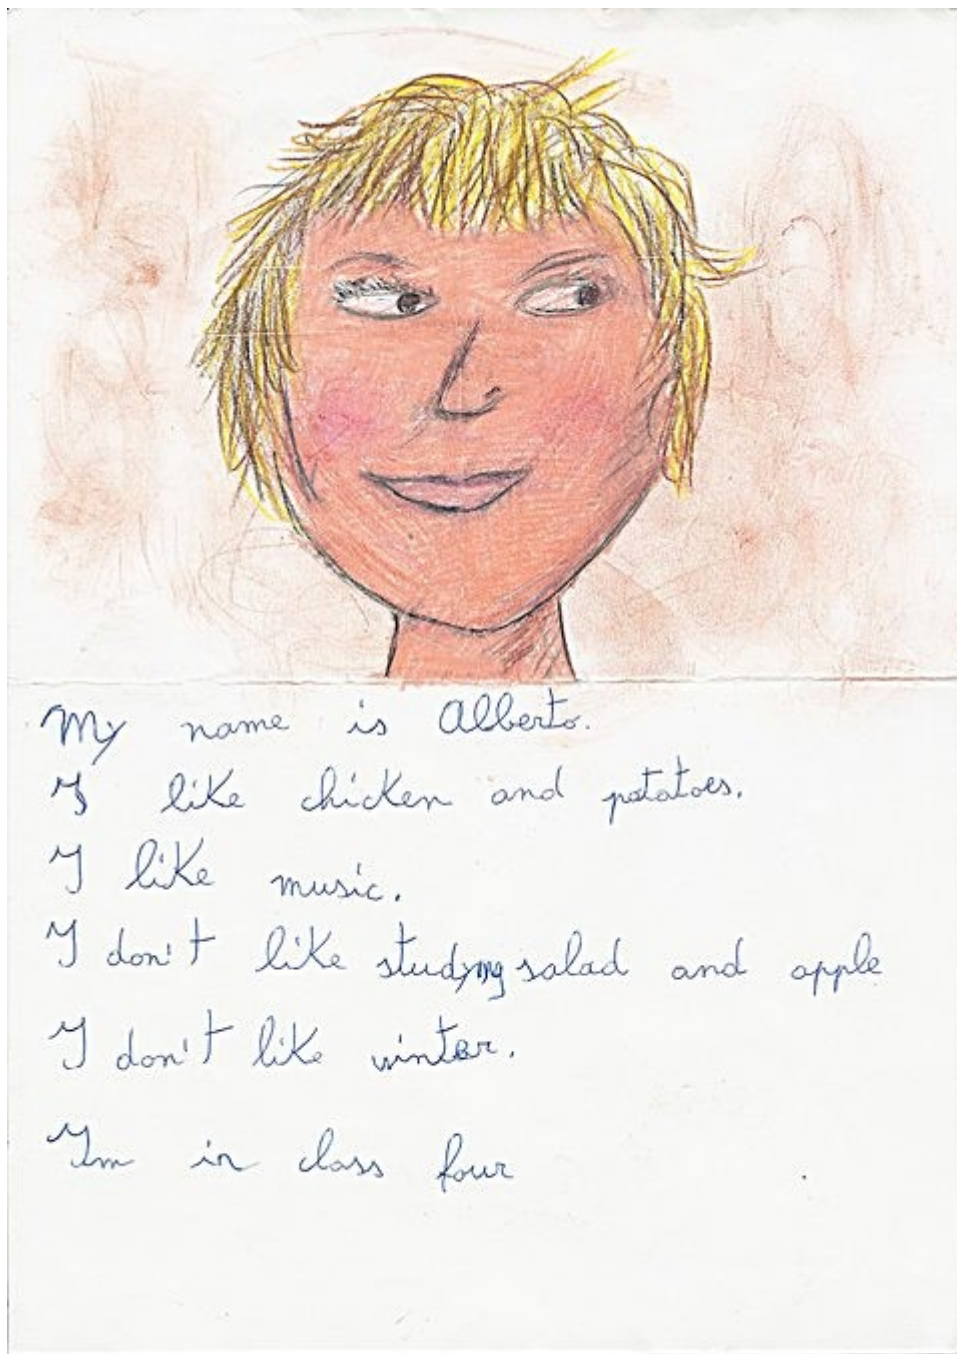 My name is Alberto.
I like chicken and potatoes.
I like music.
I don't like studying salad and apple
I don't like winter.
Im in class four